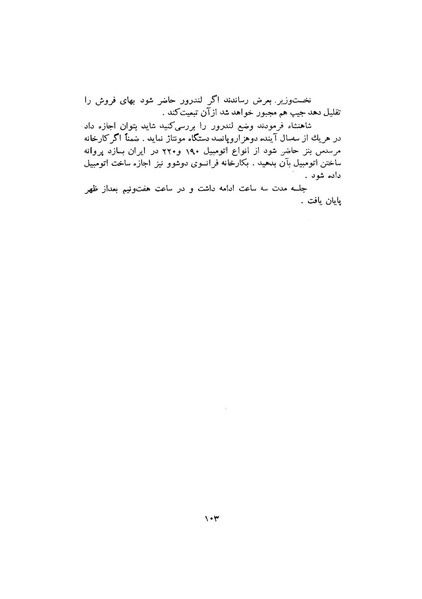 نخست‌وزیر بعرض رساندند اگر لندرور حاضر شود بهای فروش را
تقلیل دهد جیپ هم مجبور خواهد شد ازآن تبعیت‌کند .
شاهنشاه فرمودند وضع لندرور را بررسی‌کنید شاید بتوان اجازه داد
در هریك از سه‌سال آینده دوهزاروپانصد دستگاه مونتاژ نماید . ضمناً اگر کارخانه
مرسدس بنز حاضر شود از انواع اتومبیل ۱۹۰ و ۲۲۰ در ایران بسازد پروانه
ساختن اتومبیل بآن بدهید . بکارخانه فرانسوی دوشوو نیز اجازه ساخت اتومبیل
داده شود .
جلسه مدت سه ساعت ادامه داشت و در ساعت هفت‌ونیم بعداز ظهر
پایان یافت .
۱۰۳